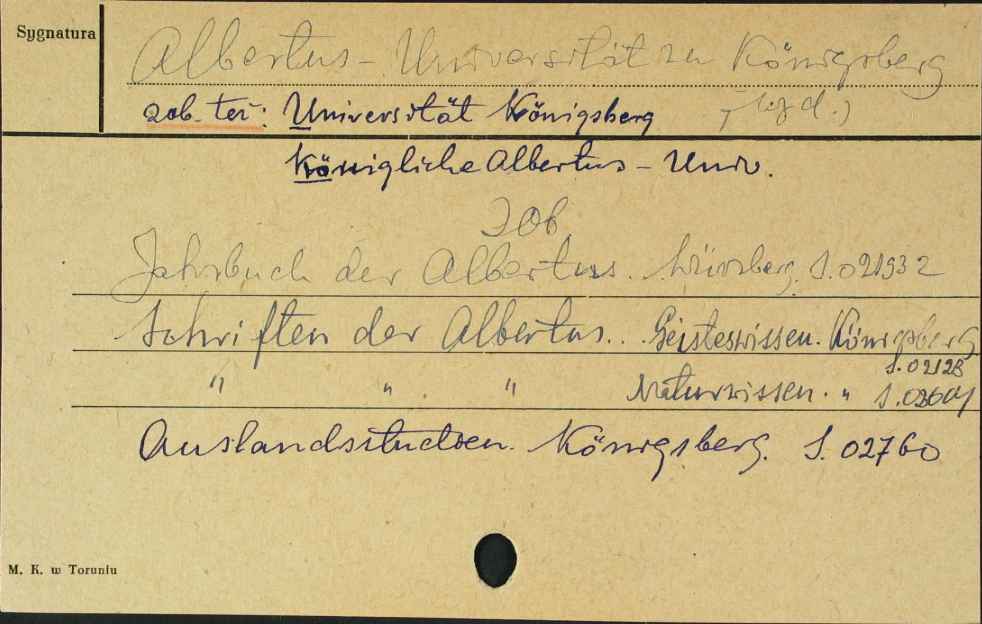 Sygnatura
Albertus-Universität zu Königsberg
zob. też: Universität Königsberg
Königliche Albertus-Univ.
Zob
Jahrbuch der Albertus. Würzberg. S.021932
Schriften der Albertus... Geisteswissen. Königsberg
S.02128
" " " Naturwissen. " S.02604
Auslandsstudien. Königsberg. S.02760
M. K. w Toruniu